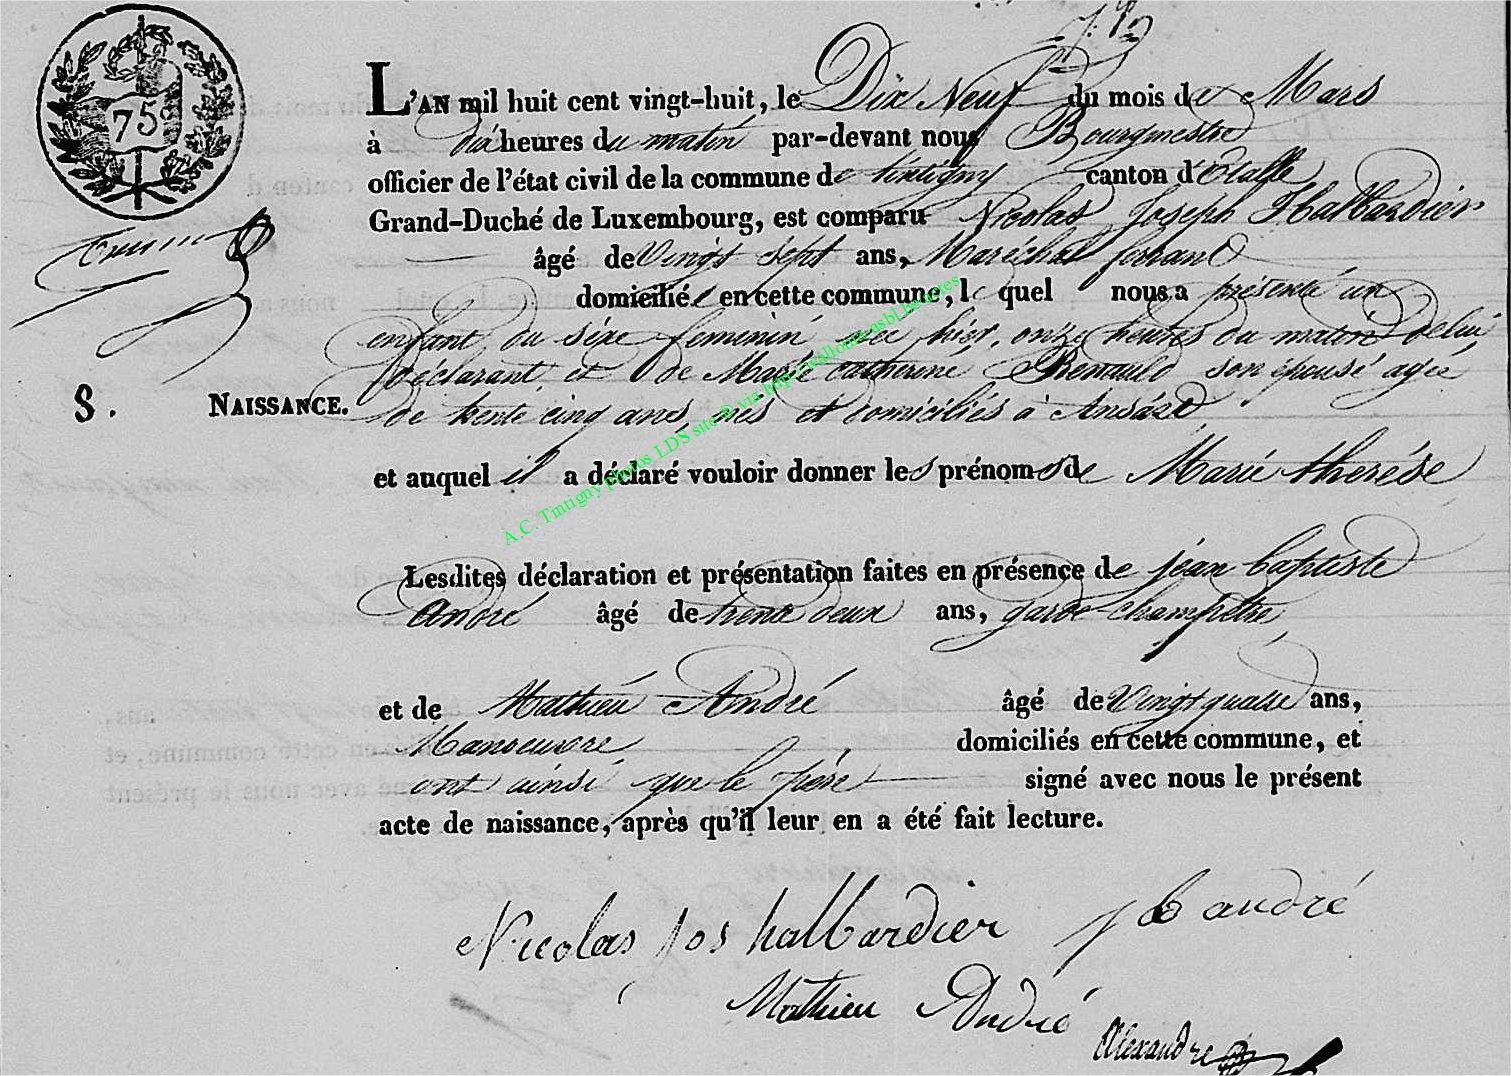 75
L'AN mil huit cent vingt-huit, le Dix Neuf du mois de Mars
à dix heures du matin par-devant nous Bourgmestre
officier de l'état civil de la commune de tintigny canton d'Etalle
Grand-Duché de Luxembourg, est comparu Nicolas Joseph Halbardier
âgé de Vingt sept ans, Maréchal ferrant
domicilié en cette commune, le quel nous a présenté un
enfant du sèxe feminin née hier, onze heures du matin de lui
déclarant, et de Marie catherine son épouse agée
8. NAISSANCE. de trente cinq ans, nés et domiciliés à Ansart
et auquel il a déclaré vouloir donner les prénoms de Marie therése
Lesdites déclaration et présentation faites en présence de jean baptiste
André âgé de trente deux ans, garde champêtre,
et de Mathieu André âgé de Vingt quatre ans,
Manoeuvre domiciliés en cette commune, et
ont ainsi que le père signé avec nous le présent
acte de naissance, après qu'il leur en a été fait lecture.
Nicolas jos halbardier j b andré
Mathieu André
Alexandre
A.C. Tintigny photos LDS site © via